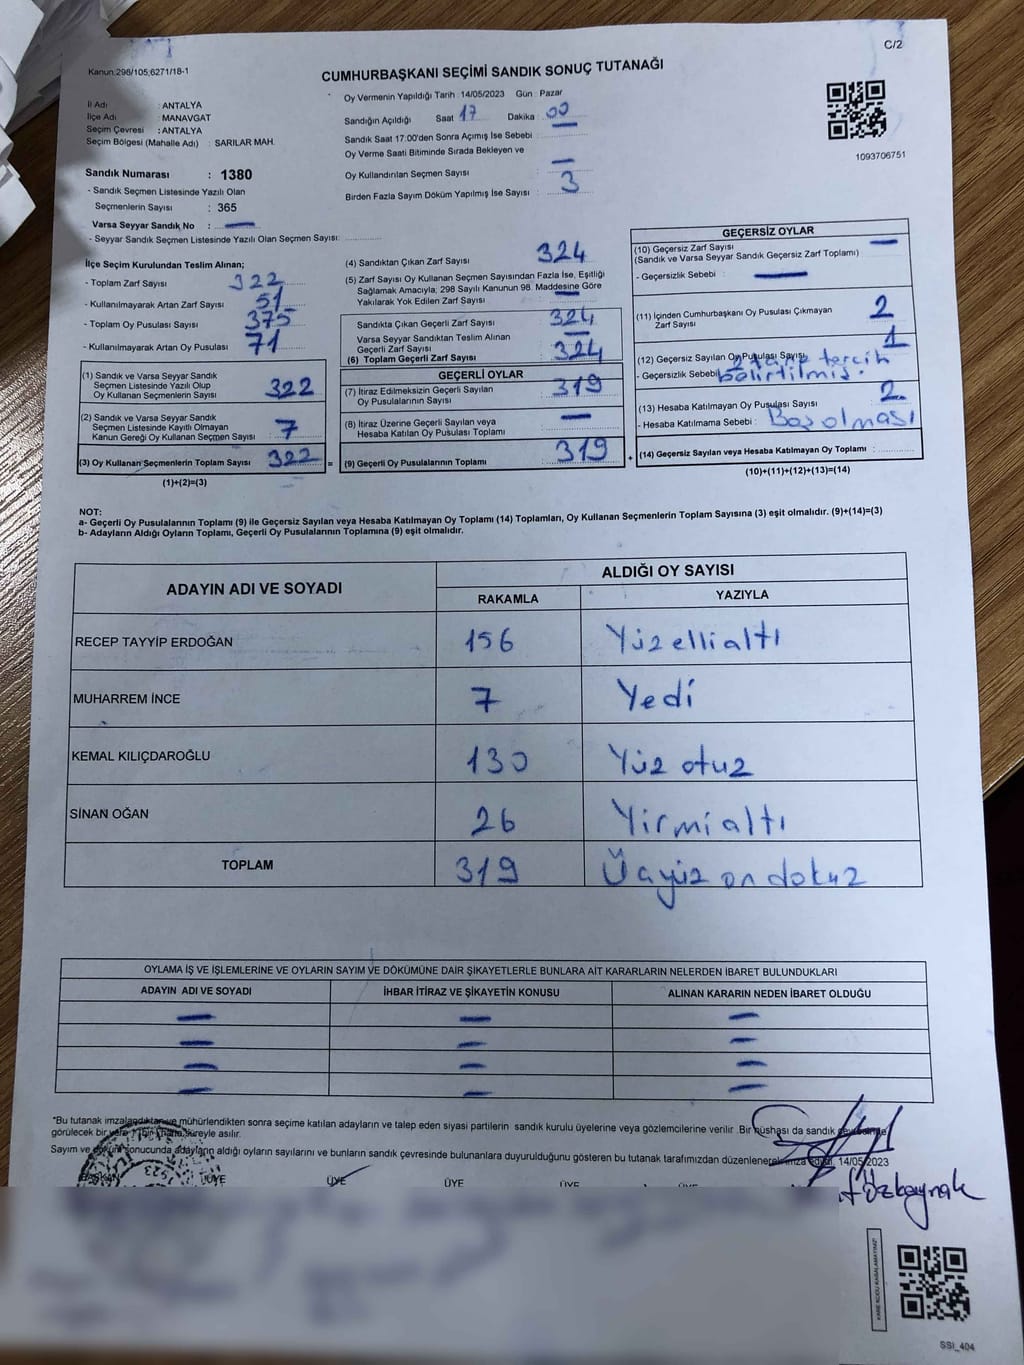 C/2
Kanun:298/105;6271/18-1
CUMHURBAŞKANI SEÇİMİ SANDIK SONUÇ TUTANAĞI
İl Adı : ANTALYA
İlçe Adı : MANAVGAT
Seçim Çevresi : ANTALYA
Seçim Bölgesi (Mahalle Adı) : SARILAR MAH.
Oy Vermenin Yapıldığı Tarih : 14/05/2023 Gün : Pazar
Sandığın Açıldığı Saat 17 Dakika : 00
Sandık Saat 17:00'den Sonra Açımış İse Sebebi : —
Oy Verme Saati Bitiminde Sırada Bekleyen ve
Oy Kullandırılan Seçmen Sayısı : —
Birden Fazla Sayım Döküm Yapılmış İse Sayısı : 3
1093706751
Sandık Numarası : 1380
- Sandık Seçmen Listesinde Yazılı Olan
Seçmenlerin Sayısı : 365
Varsa Seyyar Sandık No : —
- Seyyar Sandık Seçmen Listesinde Yazılı Olan Seçmen Sayısı:
İlçe Seçim Kurulundan Teslim Alınan;
- Toplam Zarf Sayısı : 322
- Kullanılmayarak Artan Zarf Sayısı : 51
- Toplam Oy Pusulası Sayısı : 375
- Kullanılmayarak Artan Oy Pusulası : 71
(1) Sandık ve Varsa Seyyar Sandık
Seçmen Listesinde Yazılı Olup
Oy Kullanan Seçmen Sayısı : 322
(2) Sandık ve Varsa Seyyar Sandık
Seçmen Listesinde Kayıtlı Olmayan
Kanun Gereği Oy Kullanan Seçmen Sayısı : 7
(3) Oy Kullanan Seçmenlerin Toplam Sayısı : 322 =
(1)+(2)=(3)
(4) Sandıktan Çıkan Zarf Sayısı : 324
(5) Zarf Sayısı Oy Kullanan Seçmen Sayısından Fazla İse, Eşitliği
Sağlamak Amacıyla; 298 Sayılı Kanunun 98. Maddesine Göre
Yakılarak Yok Edilen Zarf Sayısı : —
Sandıkta Çıkan Geçerli Zarf Sayısı : 324
Varsa Seyyar Sandıktan Teslim Alınan
Geçerli Zarf Sayısı : —
(6) Toplam Geçerli Zarf Sayısı : 324
GEÇERLİ OYLAR
(7) İtiraz Edilmeksizin Geçerli Sayılan
Oy Pusulalarının Sayısı : 319
(8) İtiraz Üzerine Geçerli Sayılan veya
Hesaba Katılan Oy Pusulası Toplamı : —
(9) Geçerli Oy Pusulalarının Toplamı : 319 +
GEÇERSİZ OYLAR
(10) Geçersiz Zarf Sayısı : —
(Sandık ve Varsa Seyyar Sandık Geçersiz Zarf Toplamı)
- Geçersizlik Sebebi : —
(11) İçinden Cumhurbaşkanı Oy Pusulası Çıkmayan
Zarf Sayısı : 2
(12) Geçersiz Sayılan Oy Pusulası Sayısı : 1
- Geçersizlik Sebebi : tercih
belirtilmiş.
(13) Hesaba Katılmayan Oy Pusulası Sayısı : 2
- Hesaba Katılmama Sebebi : Boş olması
(14) Geçersiz Sayılan veya Hesaba Katılmayan Oy Toplamı :
(10)+(11)+(12)+(13)=(14)
NOT:
a- Geçerli Oy Pusulalarının Toplamı (9) ile Geçersiz Sayılan veya Hesaba Katılmayan Oy Toplamı (14) Toplamları, Oy Kullanan Seçmenlerin Toplam Sayısına (3) eşit olmalıdır. (9)+(14)=(3)
b- Adayların Aldığı Oyların Toplamı, Geçerli Oy Pusulalarının Toplamına (9) eşit olmalıdır.
ADAYIN ADI VE SOYADI ALDIĞI OY SAYISI
RAKAMLA YAZIYLA
RECEP TAYYİP ERDOĞAN 156 Yüzellialtı
MUHARREM İNCE 7 Yedi
KEMAL KILIÇDAROĞLU 130 Yüz otuz
SİNAN OĞAN 26 Yirmialtı
TOPLAM 319 Üçyüz on dokuz
OYLAMA İŞ VE İŞLEMLERİNE VE OYLARIN SAYIM VE DÖKÜMÜNE DAİR ŞİKAYETLERLE BUNLARA AİT KARARLARIN NELERDEN İBARET BULUNDUKLARI
ADAYIN ADI VE SOYADI İHBAR İTİRAZ VE ŞİKAYETİN KONUSU ALINAN KARARIN NEDEN İBARET OLDUĞU
— — —
— — —
— — —
— — —
*Bu tutanak imzalandıktan ve mühürlendikten sonra seçime katılan adayların ve talep eden siyasi partilerin sandık kurulu üyelerine veya gözlemcilerine verilir .Bir nüshası da sandık çevresinde
görülecek bir yere 1 bir hafta süreyle asılır.
Sayım ve döküm sonucunda adayların aldığı oyların sayılarını ve bunların sandık çevresinde bulunanlara duyurulduğunu gösteren bu tutanak tarafımızdan düzenlenerek imza edildi. 14/05/2023
ÜYE ÜYE ÜYE ÜYE ÜYE
Özkaynak
SSI_404